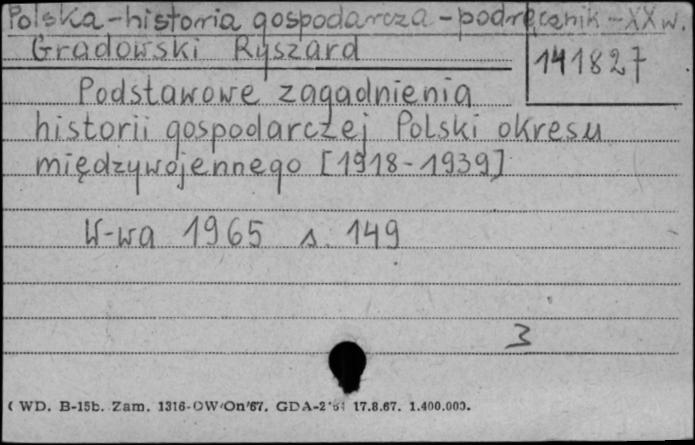 Polska-historia gospodarcza-podręcznik-XX w.
Gradowski Ryszard
141827
Podstawowe zagadnienia
historii gospodarczej Polski okresu
międzywojennego [1918-1939]
W-wa 1965 s. 149
3
WD. B-15b. Zam. 1316-OW/On/67. 17.8.67. 1.400.000.